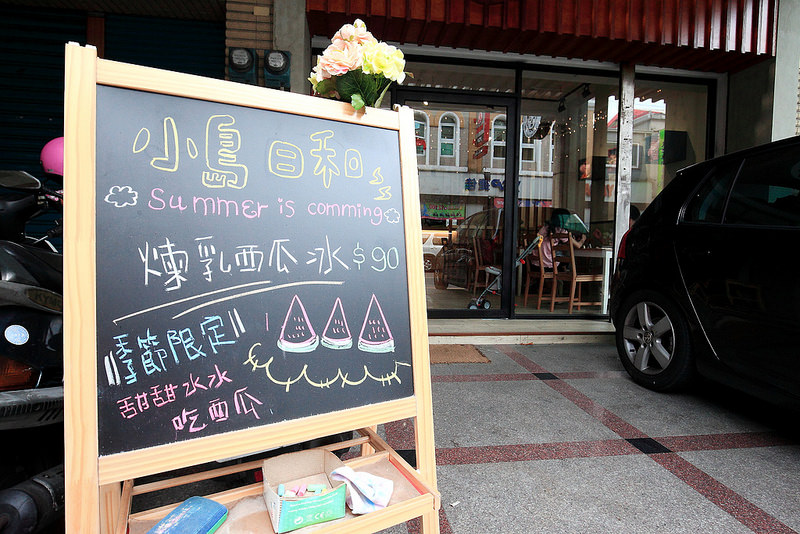 小島日和
Summer is comming
煉乳西瓜冰 $90
季節限定
甜甜水水
吃西瓜